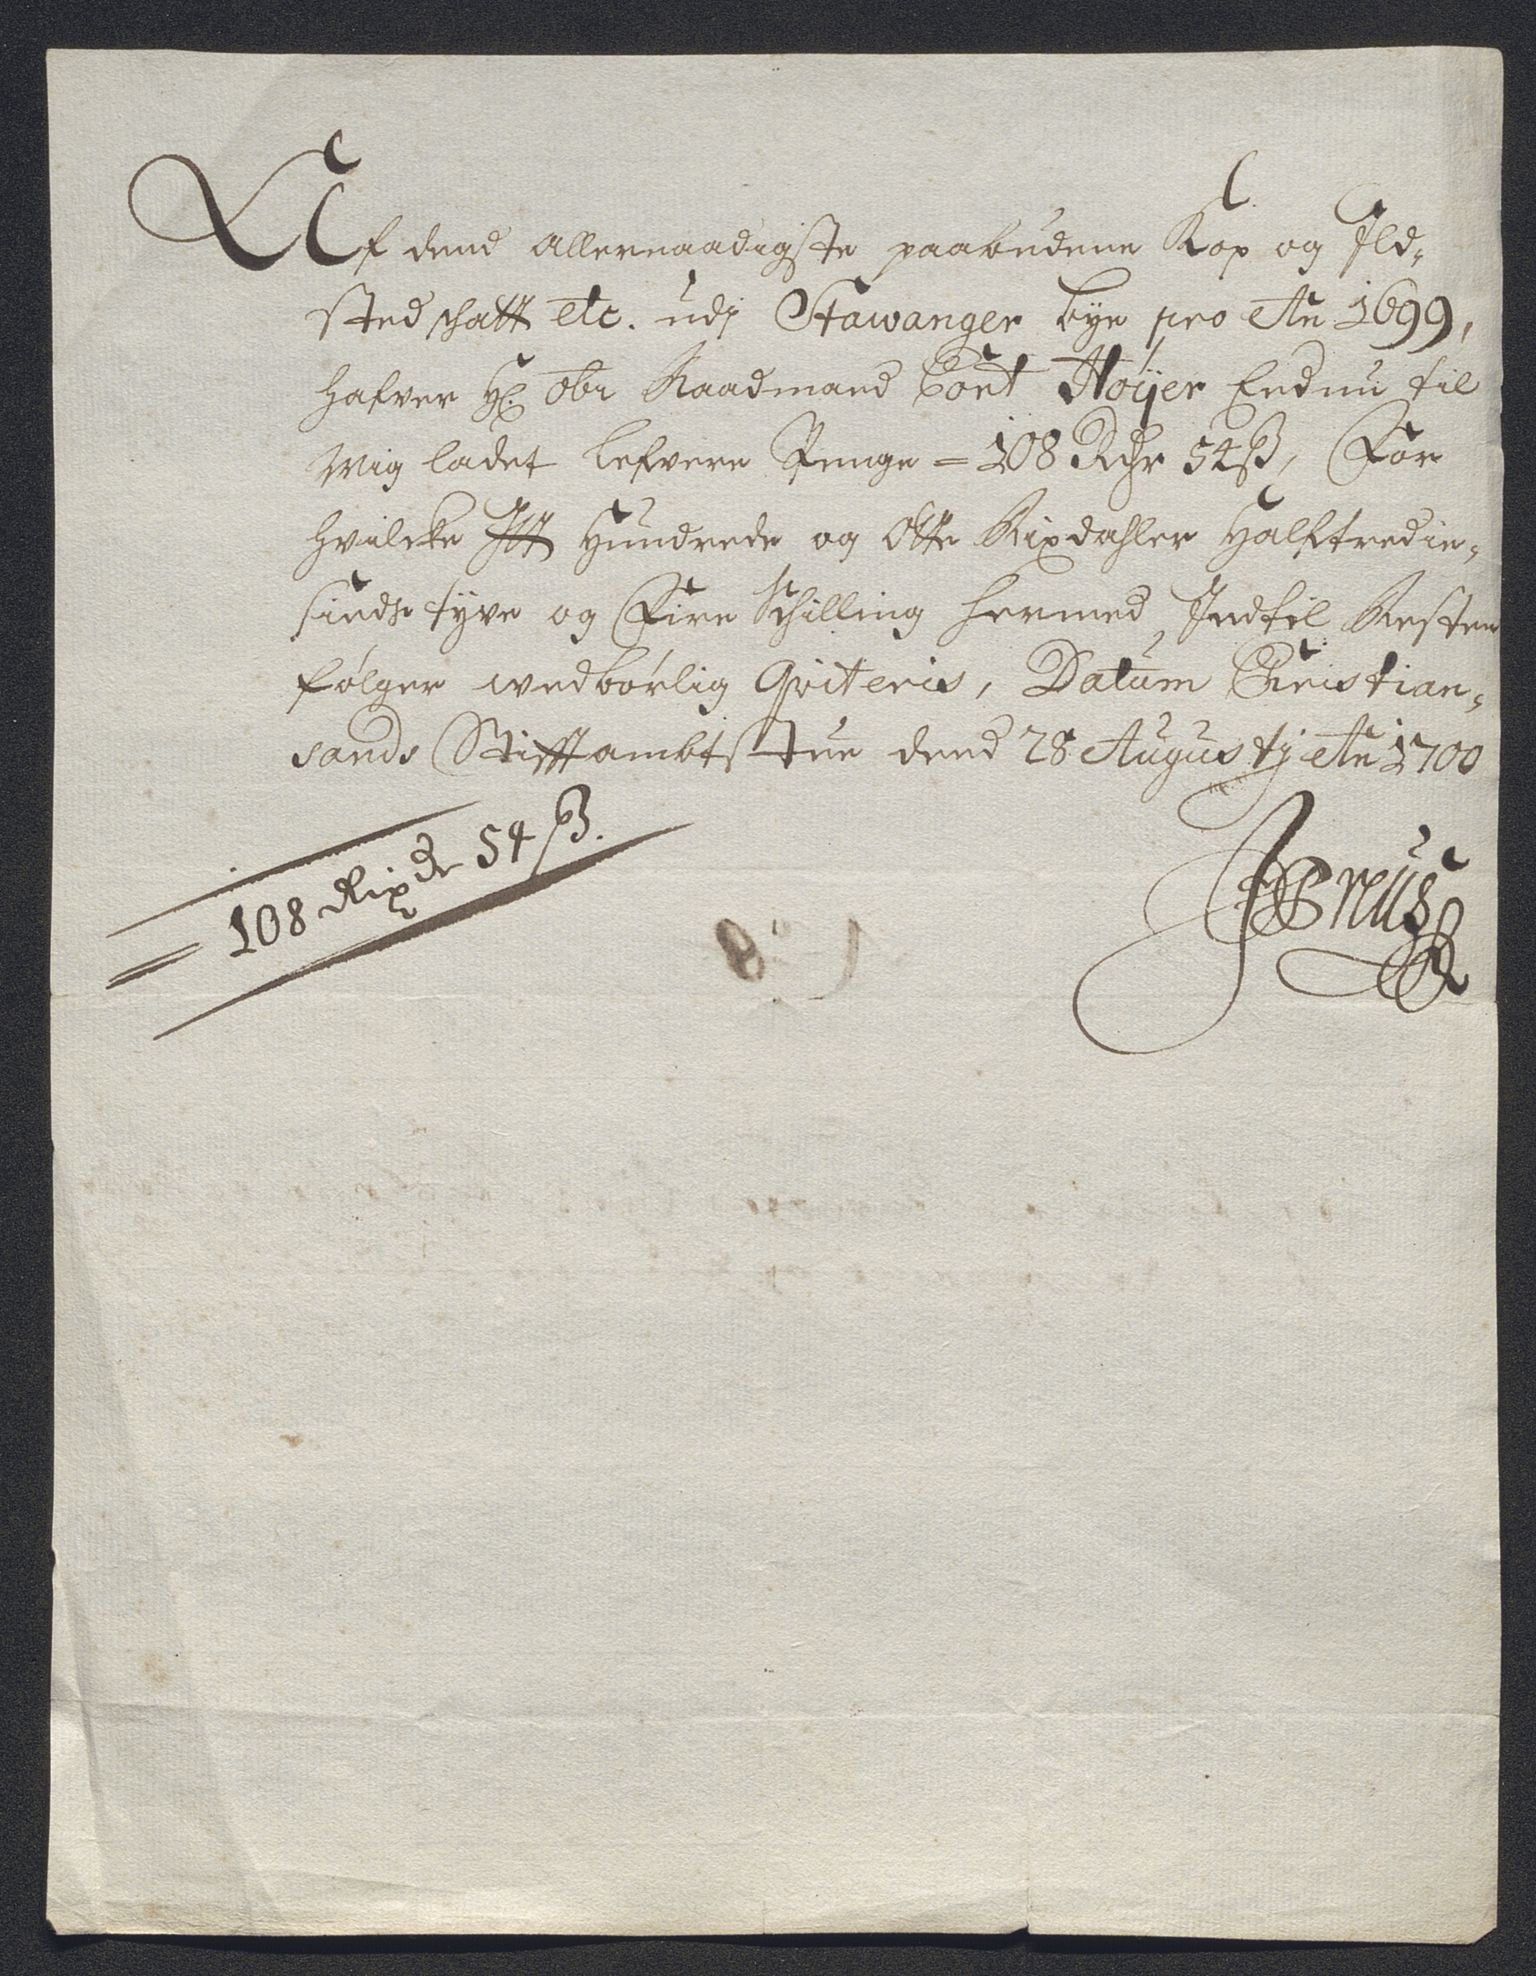 Af dend allernaadigste paabudene Kop og Ild-
sted schatt etc. udj Stawanger bye pro Ao 1699,
hafver Hr. Obr Raadmand Cort Høyer Endnu til
Mig ladet lefvere Penge = 108 Rdr 54 ß, For
hvilcke Itt Hundrede og Otte Rixdahler Halftredie-
sindstyve og Fire Schilling hermed Indtil Resten
følger wedbørlig Qviteris, Datum Christian-
sands Stifftambtstue dend 28 Augustj Ao 1700
= 108 Rixdr 54 ß.